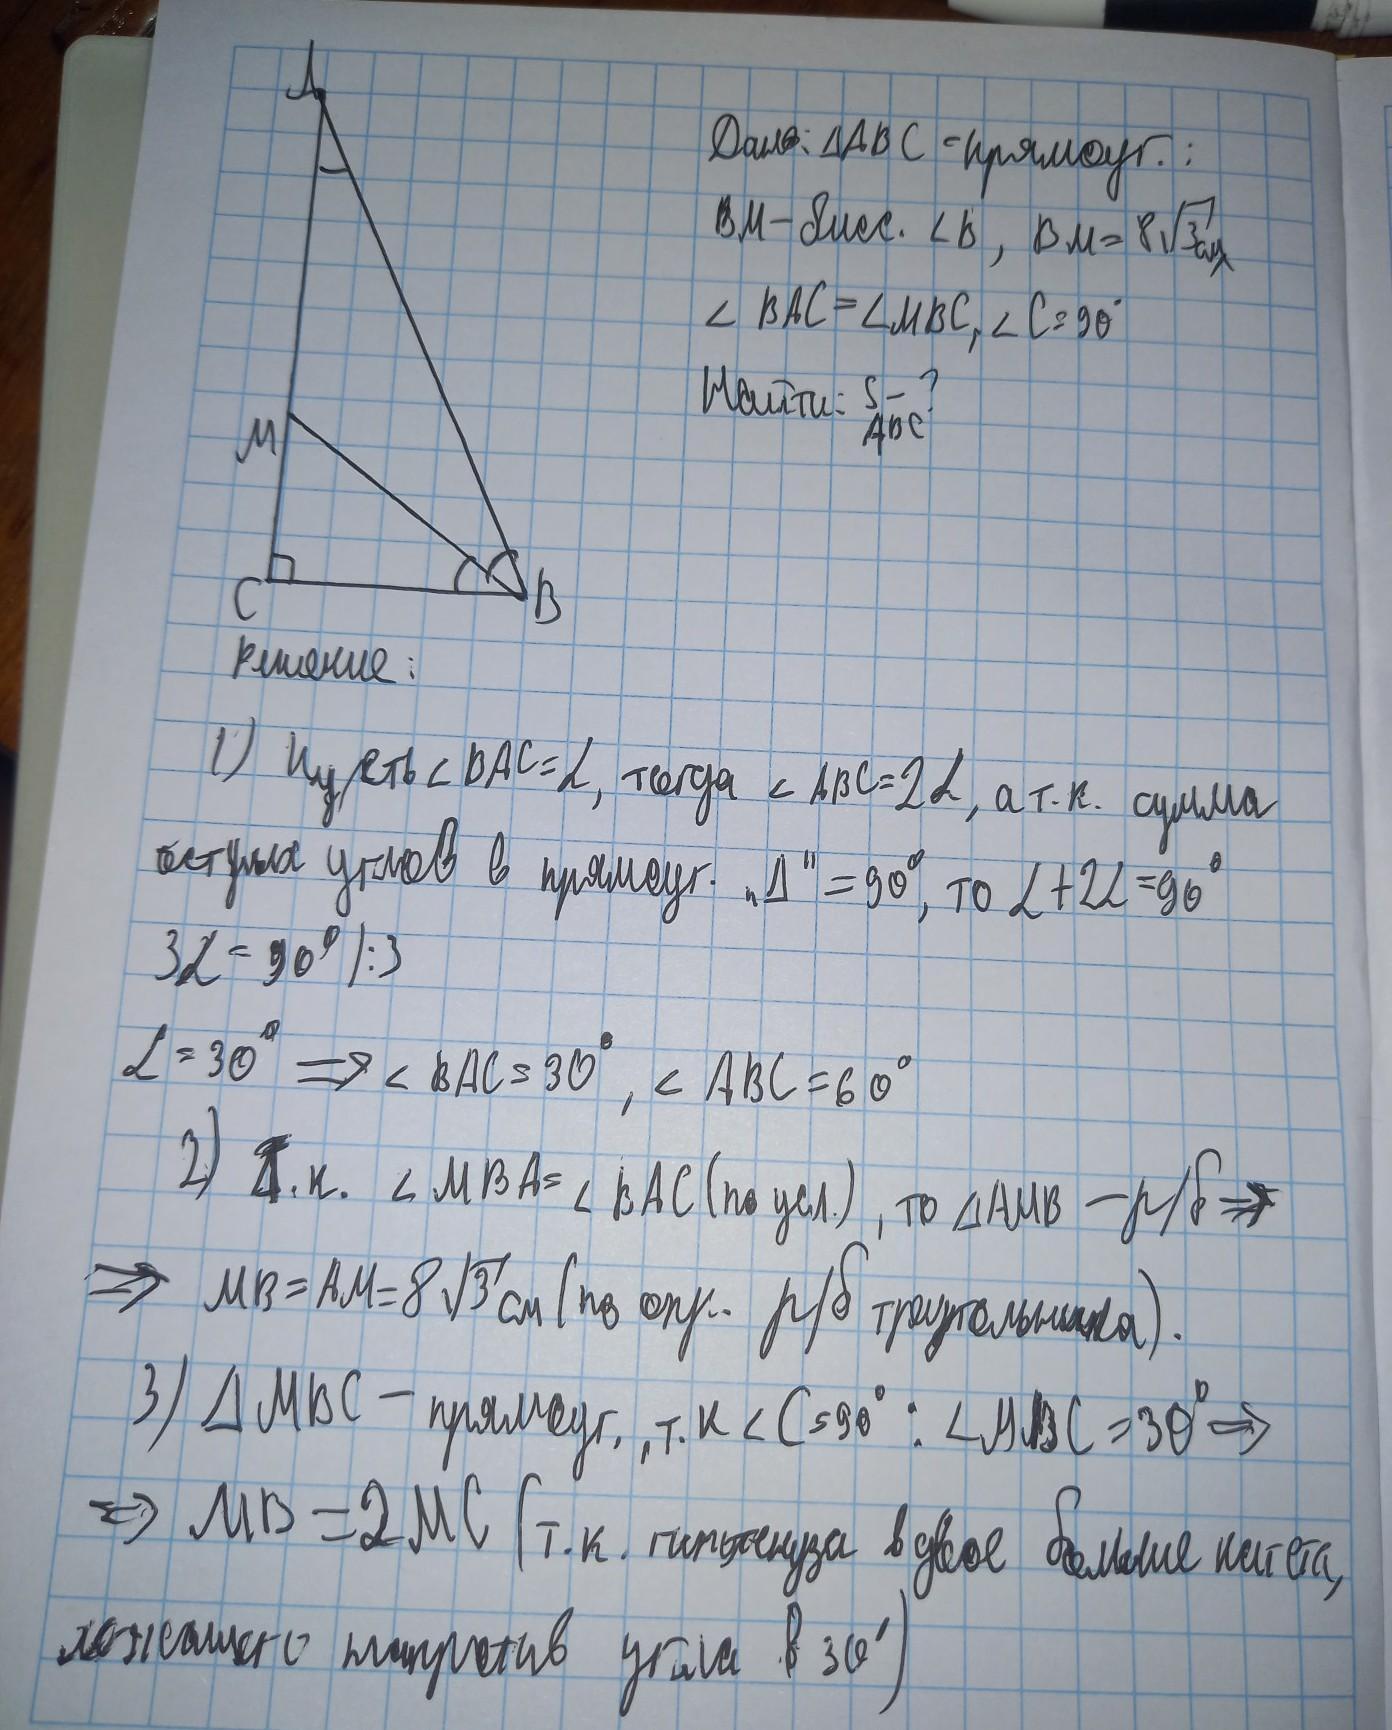 A
Дано: ΔABC - прямоуг. :
BM - бисс. ∠B, BM = 8√3 см
∠ BAC = ∠MBC, ∠ C = 90°
Найти: S ABC - ?
M
C
B
Решение:
1) Пусть ∠ BAC = α, тогда ∠ ABC = 2α, а т.к. сумма
острых углов в прямоуг. „Δ" = 90°, то α + 2α = 90°
3α = 90° |:3
α = 30° ⇒ ∠ BAC = 30°, ∠ ABC = 60°
2) Т.к. ∠ MBA = ∠ BAC (по усл.), то ΔAMB - р/б ⇒
⇒ MB = AM = 8√3 см (по опр. р/б треугольника).
3) ΔMBC - прямоуг., т.к ∠C = 90° : ∠MBC = 30° ⇒
⇒ MB = 2MC (т.к. гипотенуза вдвое больше катета,
лежащего напротив угла в 30°)